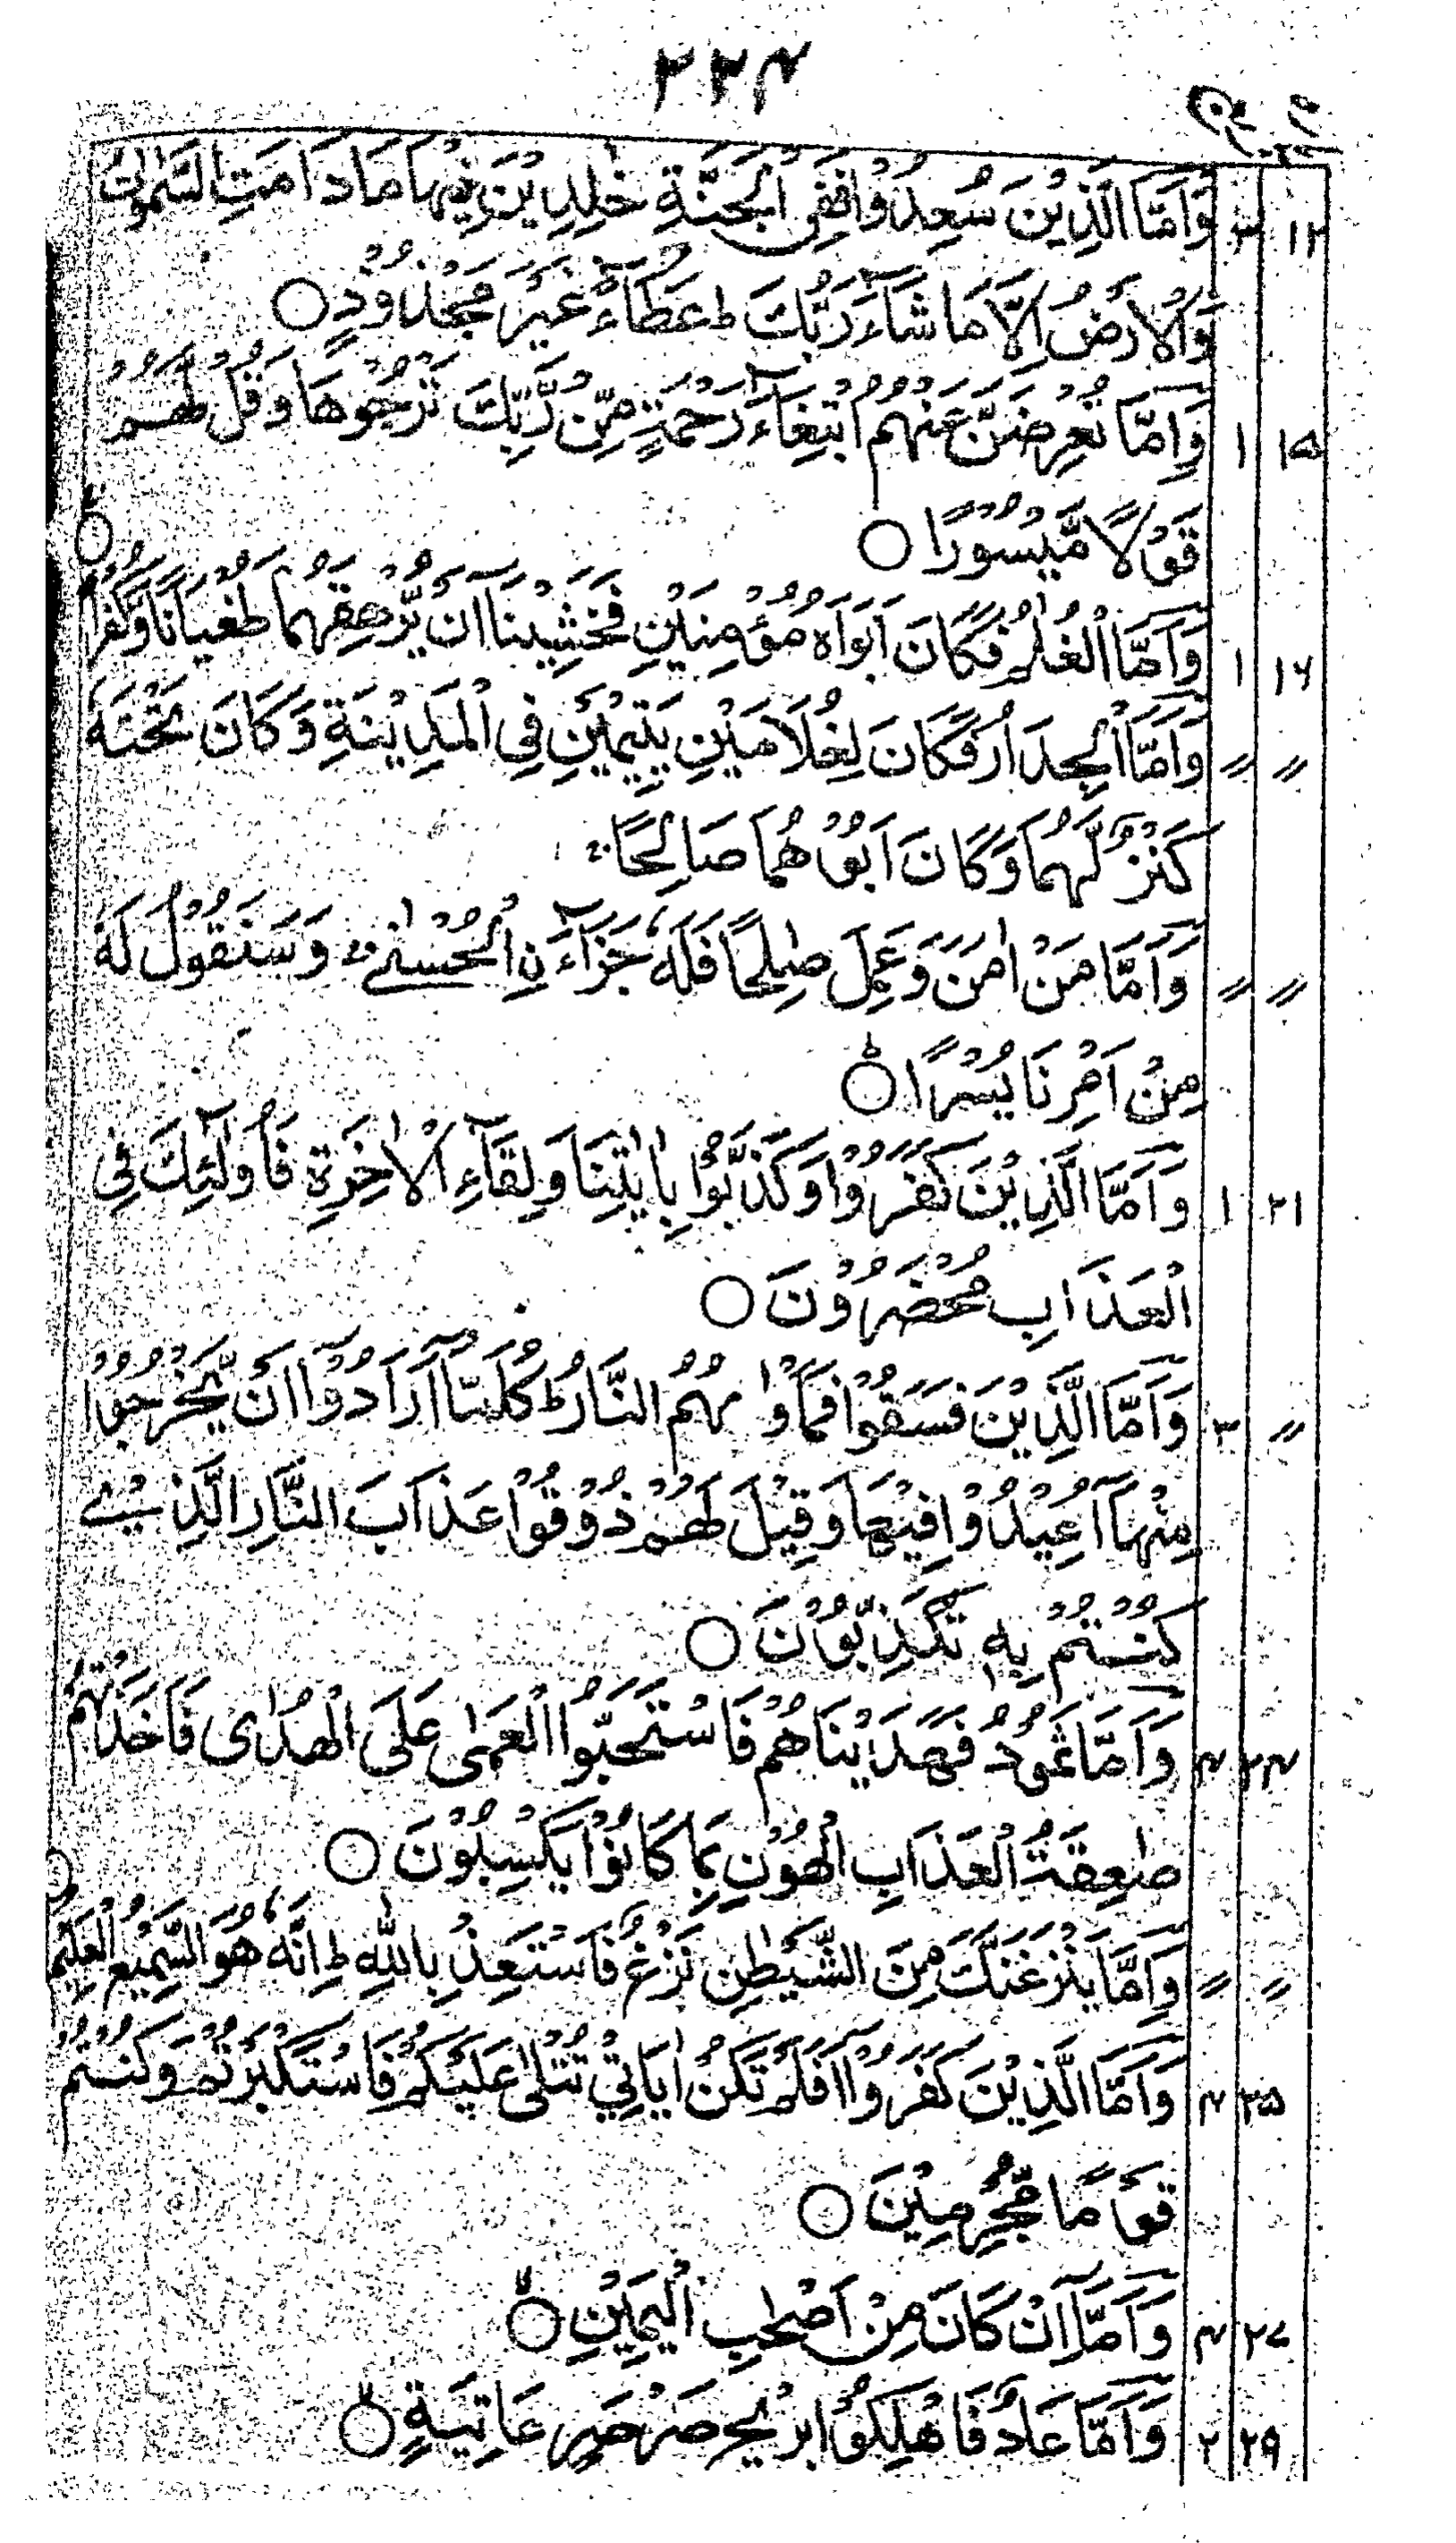 ۲۳۴
۱۲ ۳ وَاَمَّا الَّذِيْنَ سُعِدُوْا فَفِى الْجَنَّةِ خٰلِدِيْنَ فِيْهَا مَا دَامَتِ السَّمٰوٰتُ
وَالْاَرْضُ اِلَّا مَا شَآءَ رَبُّكَ ط عَطَآءً غَيْرَ مَجْذُوْذٍ ○
۱۵ ۱ وَاِمَّا تُعْرِضَنَّ عَنْهُمُ ابْتِغَآءَ رَحْمَةٍ مِّنْ رَّبِّكَ تَرْجُوْهَا وَقُلْ لَّهُمْ
قَوْلًا مَّيْسُوْرًا ○
۱۶ ۱ وَاَمَّا الْغُلٰمُ فَكَانَ اَبَوَاهُ مُؤْمِنَيْنِ فَخَشِيْنَا اَنْ يُّرْهِقَهُمَا طُغْيَانًا وَّكُفْرًا ○
〃 〃 وَاَمَّا الْجِدَارُ فَكَانَ لِغُلَامَيْنِ يَتِيْمَيْنِ فِى الْمَدِيْنَةِ وَكَانَ تَحْتَهٗ
كَنْزٌ لَّهُمَا وَكَانَ اَبُوْهُمَا صَالِحًا ج
〃 〃 وَاَمَّا مَنْ اٰمَنَ وَعَمِلَ صٰلِحًا فَلَهٗ جَزَآءَ نِ الْحُسْنٰے ج وَسَنَقُوْلُ لَهٗ
مِنْ اَمْرِنَا يُسْرًا ○ ط
۲۱ ۱ وَاَمَّا الَّذِيْنَ كَفَرُوْا وَكَذَّبُوْا بِاٰيٰتِنَا وَلِقَآءِ الْاٰخِرَةِ فَاُولٰٓئِكَ فِى
الْعَذَابِ مُحْضَرُوْنَ ○
〃 ۳ وَاَمَّا الَّذِيْنَ فَسَقُوْا فَمَاْوٰىهُمُ النَّارُ ط كُلَّمَآ اَرَادُوْٓا اَنْ يَّخْرُجُوْا
مِنْهَآ اُعِيْدُوْا فِيْهَا وَقِيْلَ لَهُمْ ذُوْقُوْا عَذَابَ النَّارِ الَّذِيْے
كُنْتُمْ بِهٖ تُكَذِّبُوْنَ ○
۲۴ ۴ وَاَمَّا ثَمُوْدُ فَهَدَيْنَاهُمْ فَاسْتَحَبُّوا الْعَمٰى عَلَى الْهُدٰى فَاَخَذَتْهُمْ
صٰعِقَةُ الْعَذَابِ الْهُوْنِ بِمَا كَانُوْا يَكْسِبُوْنَ ○
〃 〃 وَاِمَّا يَنْزَغَنَّكَ مِنَ الشَّيْطٰنِ نَزْغٌ فَاسْتَعِذْ بِاللّٰهِ ط اِنَّهٗ هُوَ السَّمِيْعُ الْعَلِيْمُ ○
۲۵ ۴ وَاَمَّا الَّذِيْنَ كَفَرُوْا اَفَلَمْ تَكُنْ اٰيَاتِيْ تُتْلٰى عَلَيْكُمْ فَاسْتَكْبَرْتُمْ وَكُنْتُمْ
قَوْمًا مُّجْرِمِيْنَ ○
۲۷ ۴ وَاَمَّآ اَنْ كَانَ مِنْ اَصْحٰبِ الْيَمِيْنِ ○
۲۹ ۲ وَاَمَّا عَادٌ فَاُهْلِكُوْا بِرِيْحٍ صَرْصَرٍ عَاتِيَةٍ ○